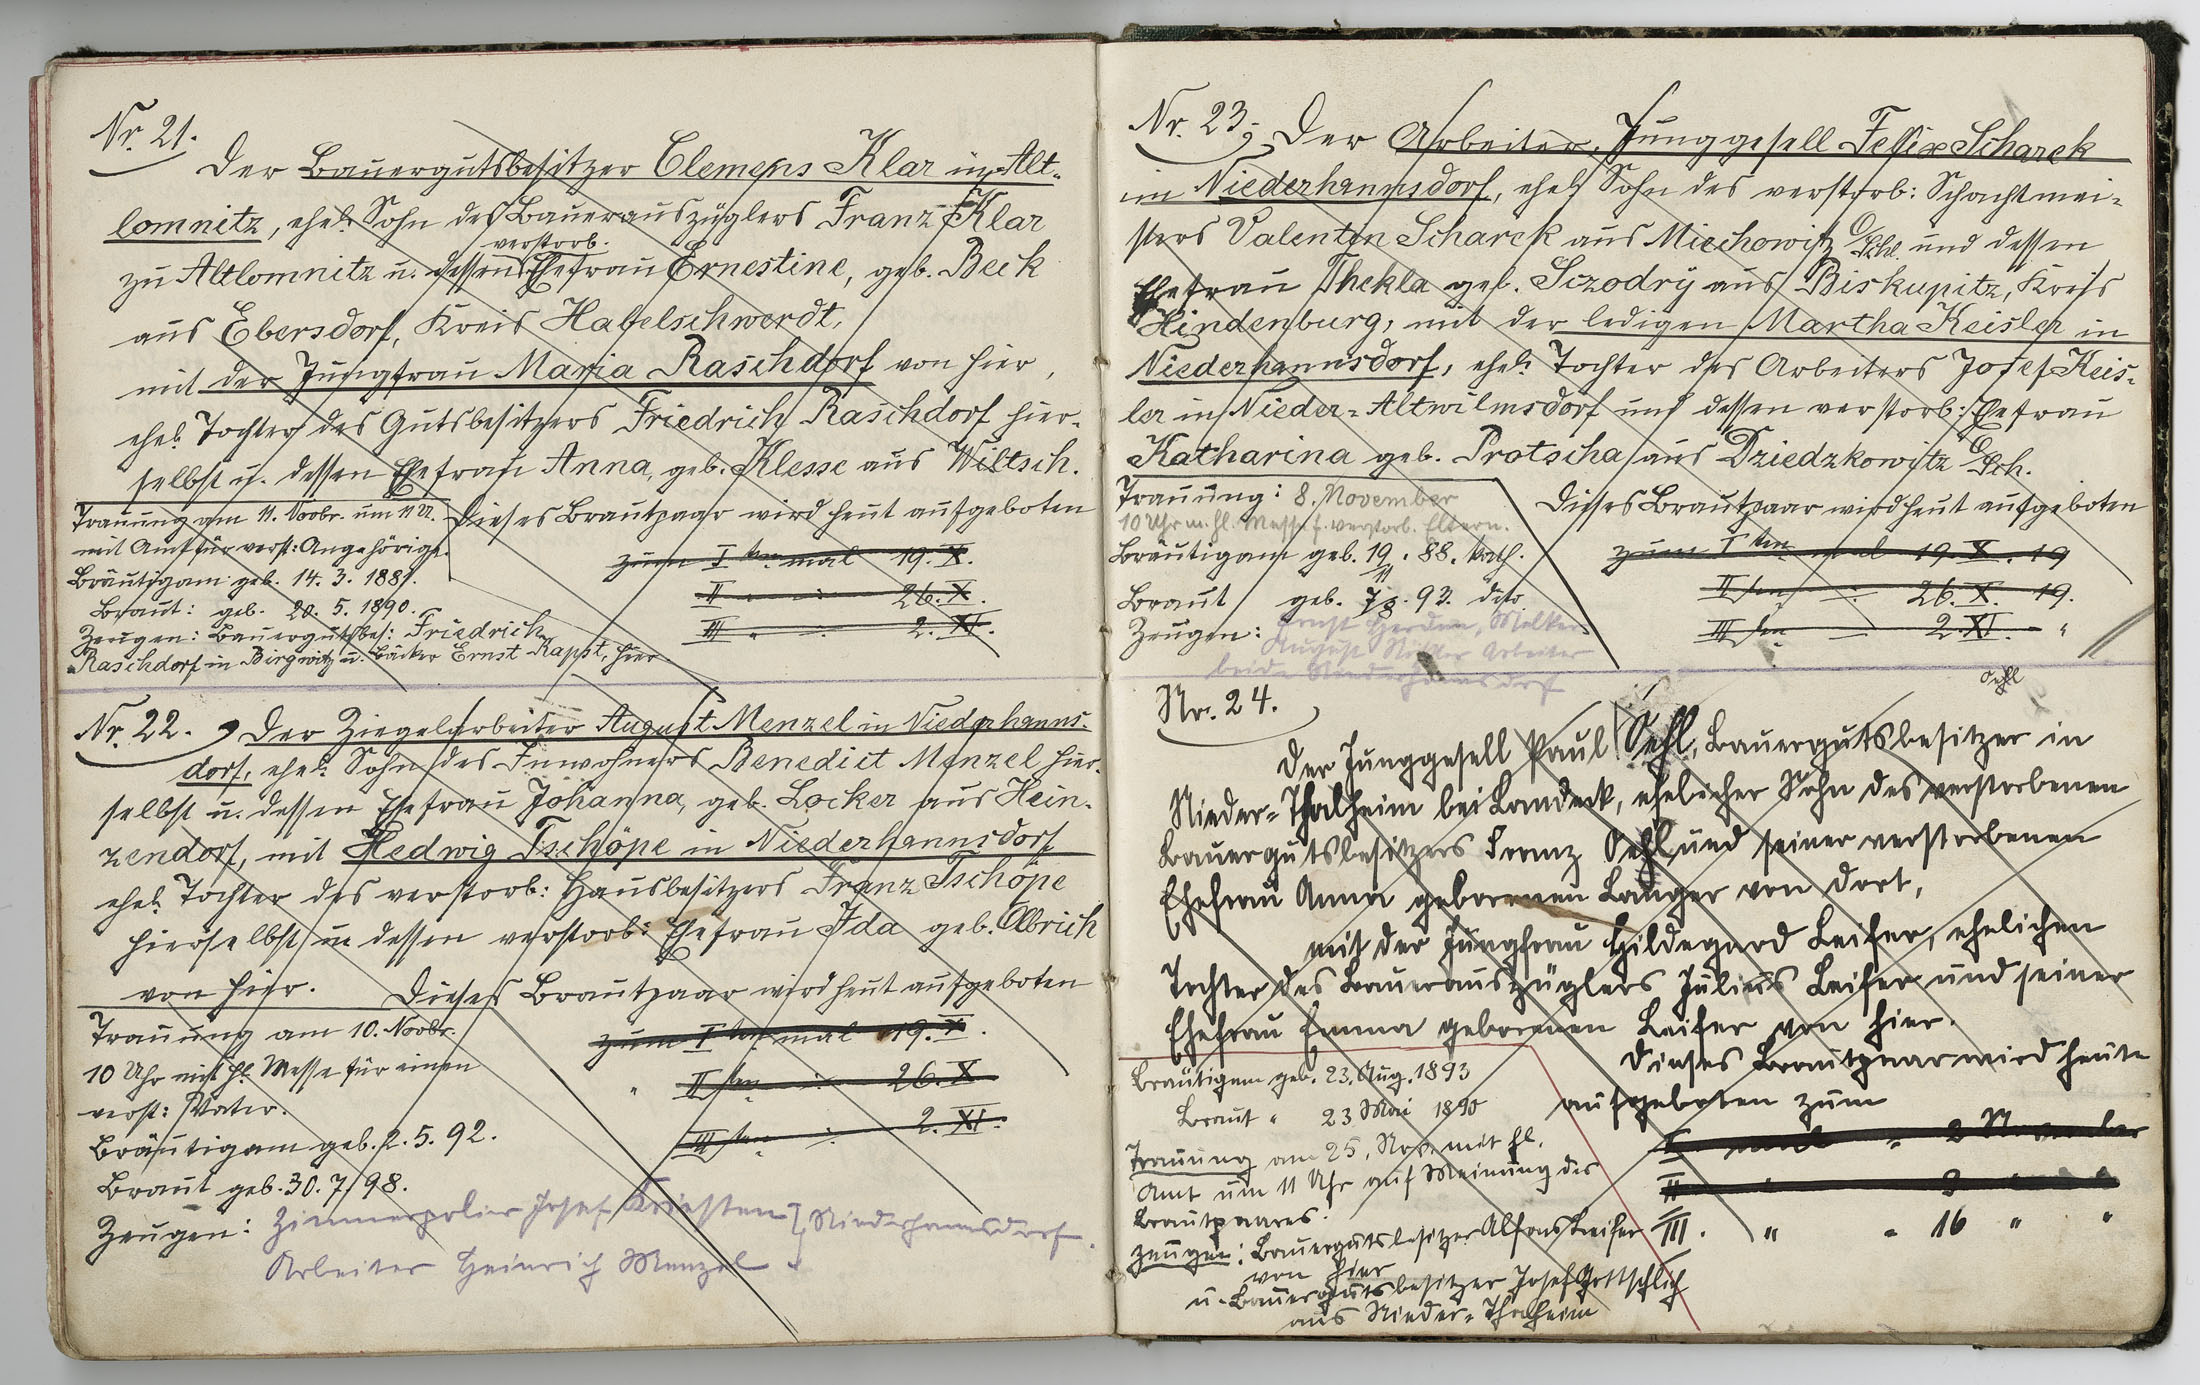 Nr. 21.
Der Bauergutsbesitzer Clemens Klar in Alt-
lomnitz, ehel. Sohn des Bauerauszüglers Franz Klar
verstorb.
zu Altlomnitz u. dessen Ehefrau Ernestine, geb. Beck
aus Ebersdorf, Kreis Habelschwerdt,
mit der Jungfrau Maria Raschdorf von hier,
ehel. Tochter des Gutsbesitzers Friedrich Raschdorf hier-
selbst u. dessen Ehefrau Anna, geb. Klesse aus Wiltsch.
Dieses Brautpaar wird heut aufgeboten
zum I ten mal 19. X.
II " 26. X.
III " 2. XI.
Trauung am 11. Novbr. um 11 U.
mit Amt für verst: Angehörige.
Bräutigam geb. 14. 3. 1881.
Braut: geb. 20. 5. 1890.
Zeugen: Bauergutsbes: Friedrich
Raschdorf in Birgwitz u. Bäcker Ernst Rapst, hier
Nr. 22. Der Ziegelarbeiter August Menzel in Niederhanns-
dorf, ehel. Sohn des Inwohners Benedict Menzel hier-
selbst u. dessen Ehefrau Johanna, geb. Locker aus Hein-
zendorf, mit Hedwig Tschöpe in Niederhannsdorf
ehel. Tochter des verstorb: Hausbesitzers Franz Tschöpe
hierselbst u dessen verstorb: Ehefrau Ida geb. Olbrich
von hier. Dieses Brautpaar wird heut aufgeboten
zum I ten mal 19. X.
" II ten 26. X
III ten 2. XI.
Trauung am 10. Novbr.
10 Uhr mit hl. Messe für einen
verst: Vater.
Bräutigam geb. 2. 5. 92.
Braut geb. 30. 7. 98.
Zeugen: Zimmerpolier Josef Kriesten } Niederhannsdorf.
Arbeiter Heinrich Menzel
Nr. 23. Der Arbeiter, Junggesell Felix Scharek
in Niederhannsdorf, ehel. Sohn des verstorb: Schachtmei-
sters Valentin Scharek aus Miechowitz O/Schl. und dessen
Ehefrau Thekla geb. Sczodry aus Biskupitz, Kreis
Hindenburg, mit der ledigen Martha Keisler in
Niederhannsdorf, ehel. Tochter des Arbeiters Josef Keis-
ler in Nieder-Altwilmsdorf und dessen verstorb: Ehefrau
Katharina geb. Protscha aus Dziedzkowitz O/Sch.
Dieses Brautpaar wird heut aufgeboten
zum I ten mal 19. X. 19
II ten 26. X. 19.
III ten 2. XI. "
Trauung: 8. November
10 Uhr m. hl. Messe f. verstorb. Eltern.
Bräutigam geb. 19. 88. kath.
Braut geb. 93. dito
Zeugen: Ernst Melker
August Arbeiter
beide Niederhannsdorf
Nr. 24.
Oehl
Der Junggesell Paul Oehl, Bauergutsbesitzer in
Nieder-Thalheim bei Landeck, ehelicher Sohn des verstorbenen
Bauergutsbesitzers Franz Oehl und seiner verstorbenen
Ehefrau Anna geborenen Langer von dort,
mit der Jungfrau Hildegard Leifer, ehelichen
Tochter des Bauerauszüglers Julius Leifer und seiner
Ehefrau Emma geborenen Leifer von hier.
Dieses Brautpaar wird heute
aufgeboten zum
I mal " 2 November
II " 9 "
III. " " 16 " "
Bräutigam geb. 23. Aug. 1893
Braut " 23 Mai 1890
Trauung am 25. Nov. mit hl.
Amt um 11 Uhr auf Meinung des
Brautpaares.
Zeugen: Bauergutsbesitzer Alfons Leifer
von hier
u. Bauergutsbesitzer Josef Gottschlich
aus Nieder-Thalheim